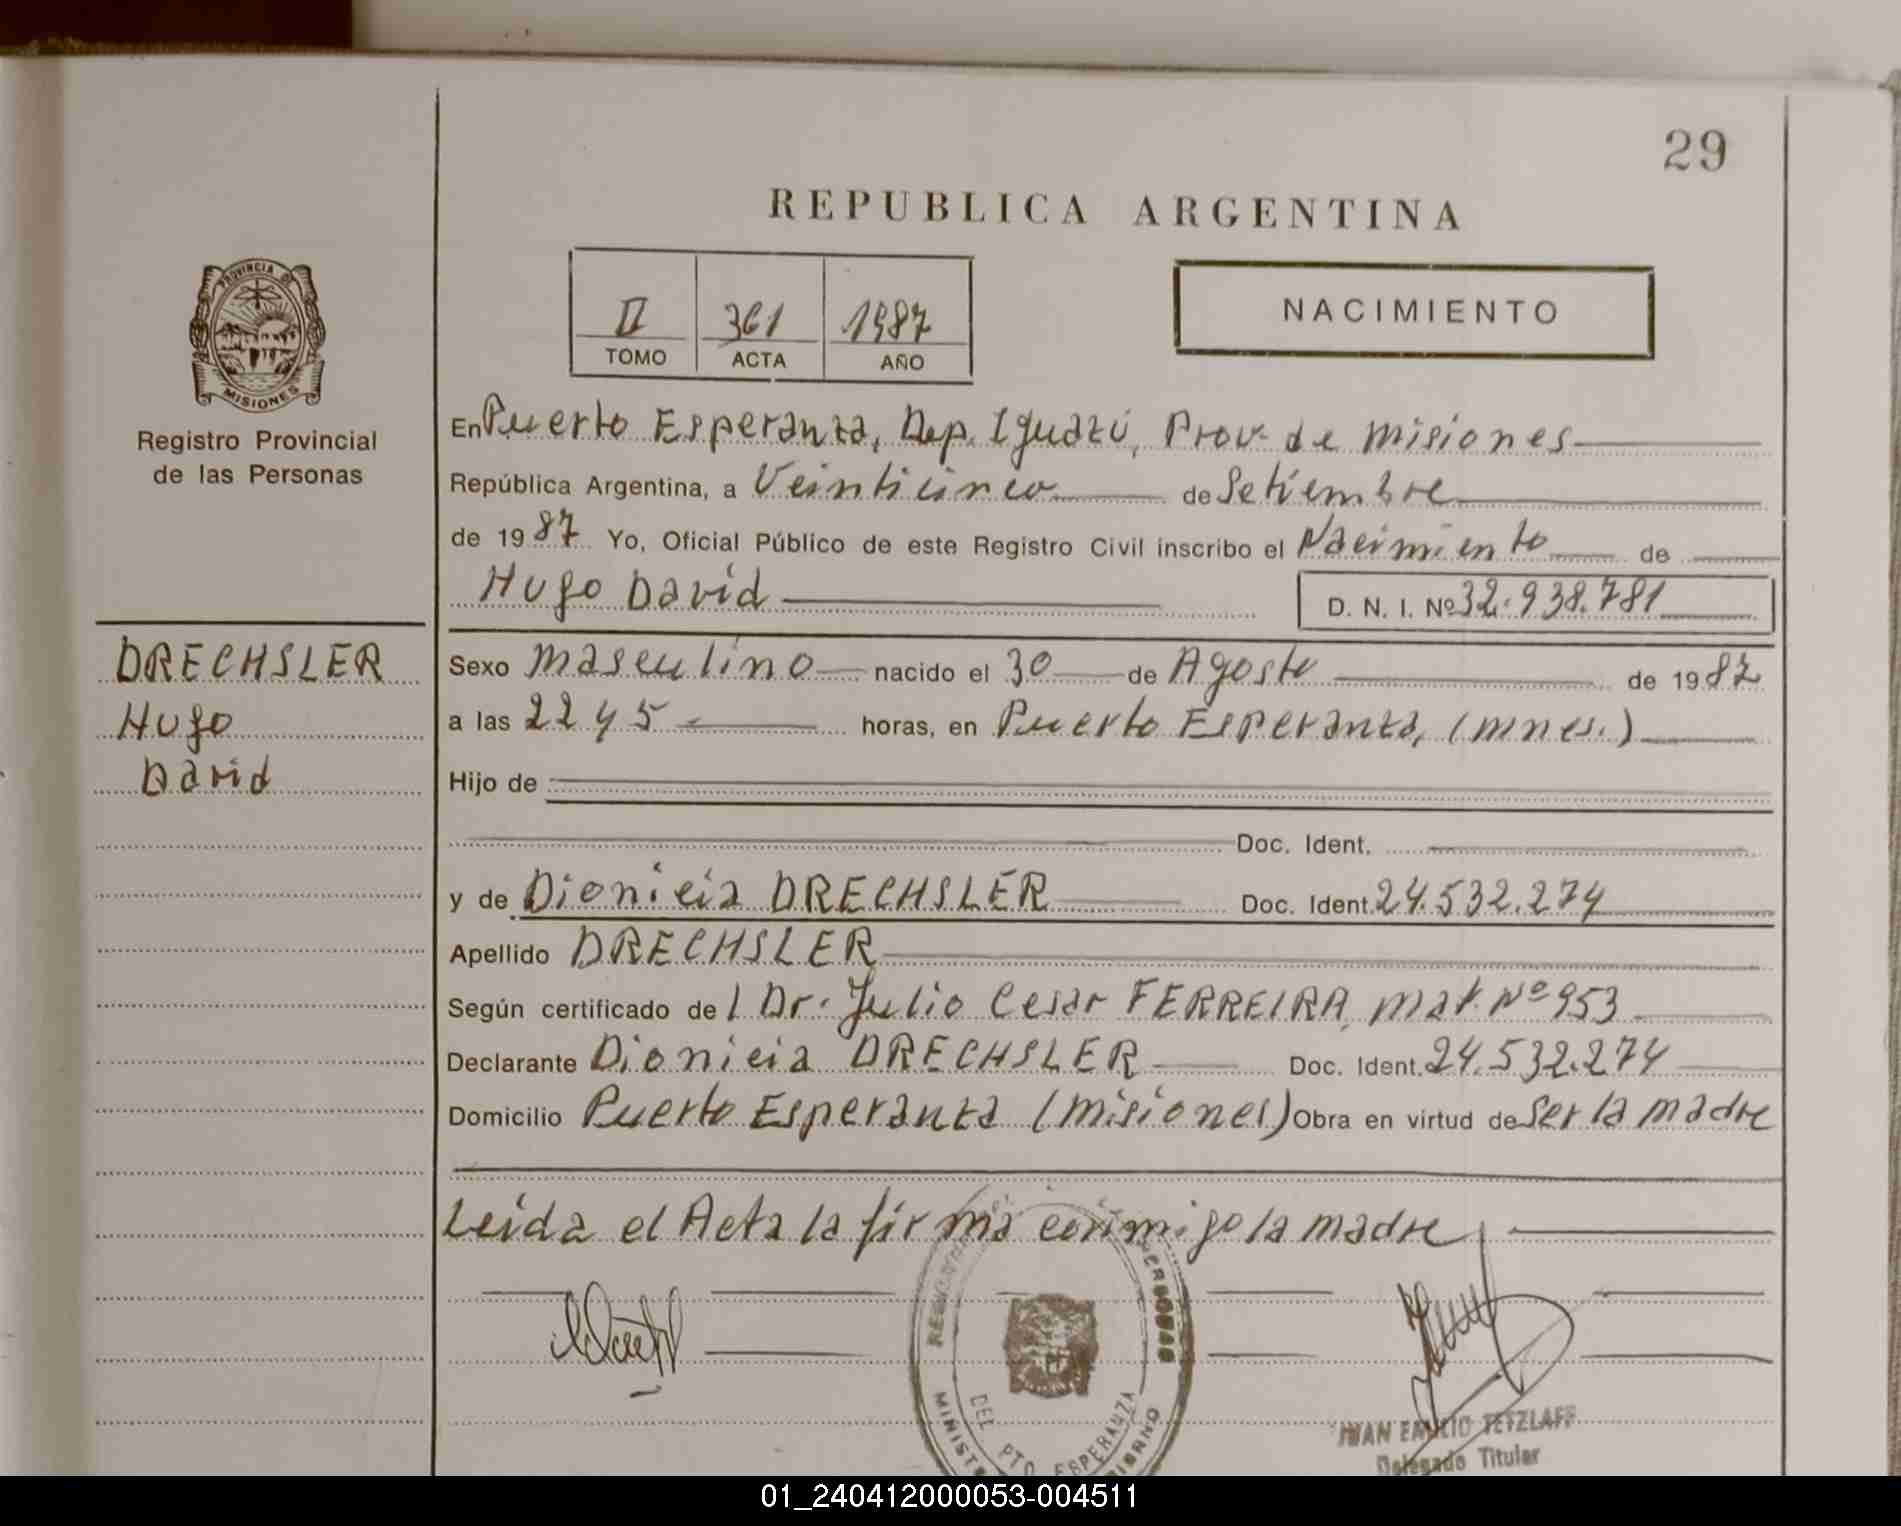 29
REPUBLICA ARGENTINA
II 361 1987
TOMO ACTA AÑO
NACIMIENTO
PROVINCIA DE
MISIONES
Registro Provincial
de las Personas
DRECHSLER
Hugo
David
En Puerto Esperanza, Dep. Iguazú, Prov. de Misiones
República Argentina, a Veinticinco de Setiembre
de 1987 Yo, Oficial Público de este Registro Civil inscribo el Nacimiento de
Hugo David D. N. I. Nº 32.938.781
Sexo masculino nacido el 30 de Agosto de 1987
a las 22 45 horas, en Puerto Esperanza, (mnes.)
Hijo de
Doc. Ident.
y de Dionicia DRECHSLER Doc. Ident. 24.532.274
Apellido DRECHSLER
Según certificado de l Dr. Julio Cesar FERREIRA, mat. Nº 953
Declarante Dionicia DRECHSLER Doc. Ident. 24.532.274
Domicilio Puerto Esperanza (Misiones) Obra en virtud de ser la madre
Leída el Acta la firma conmigo la madre
DEL PTO ESPERANZA
JUAN EMILIO TETZLAFF
Delegado Titular
01_240412000053-004511